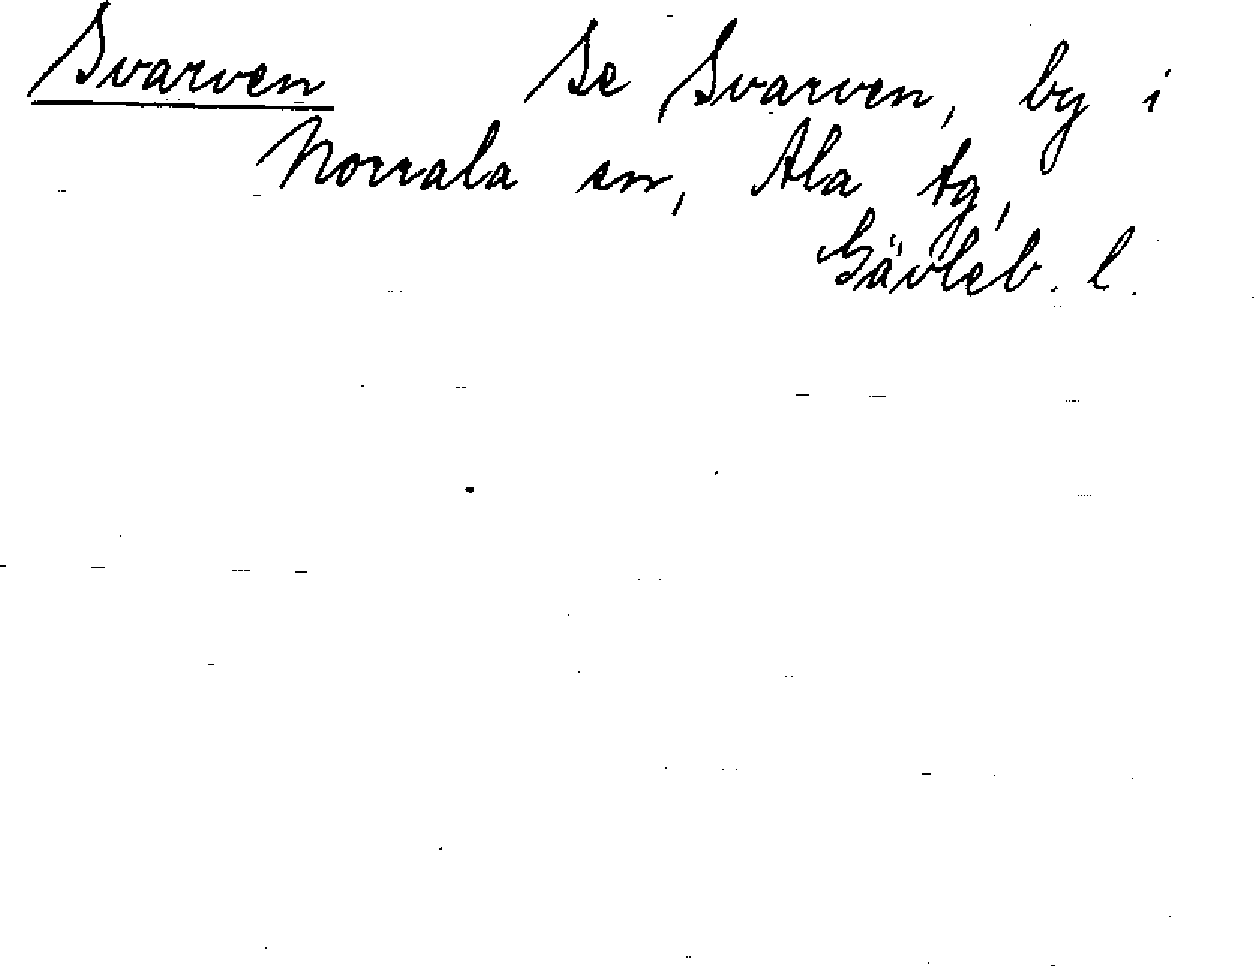 Svarven Se Svarven, by i
Norrala sn, Ala tg,
Gävleb. l.